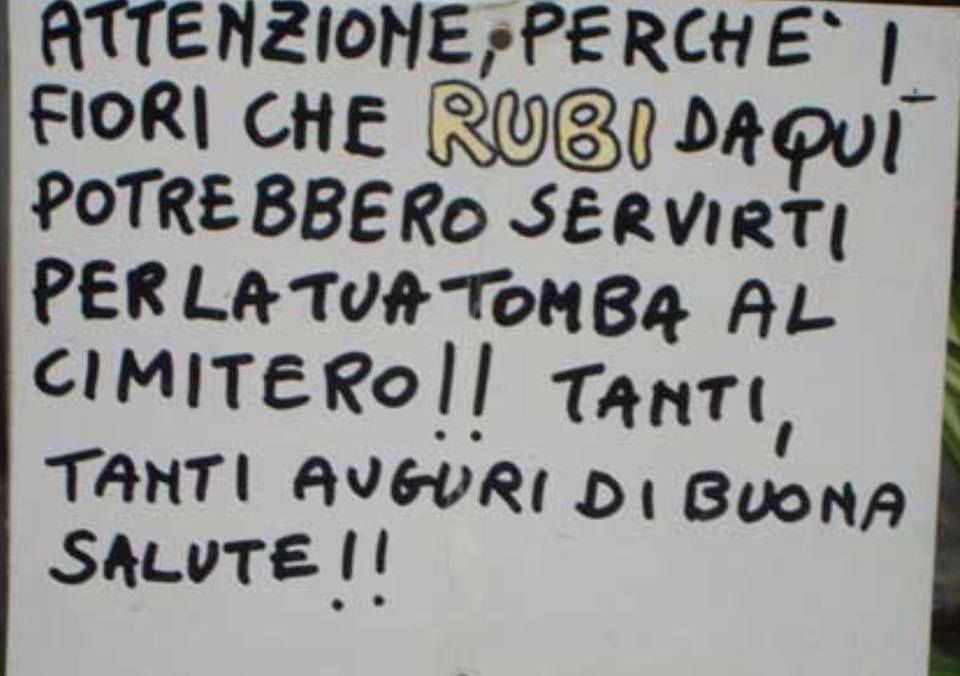 ATTENZIONE, PERCHE` I
FIORI CHE RUBI DA QUI
POTREBBERO SERVIRTI
PER LA TUA TOMBA AL
CIMITERO!! TANTI,
TANTI AUGURI DI BUONA
SALUTE!!